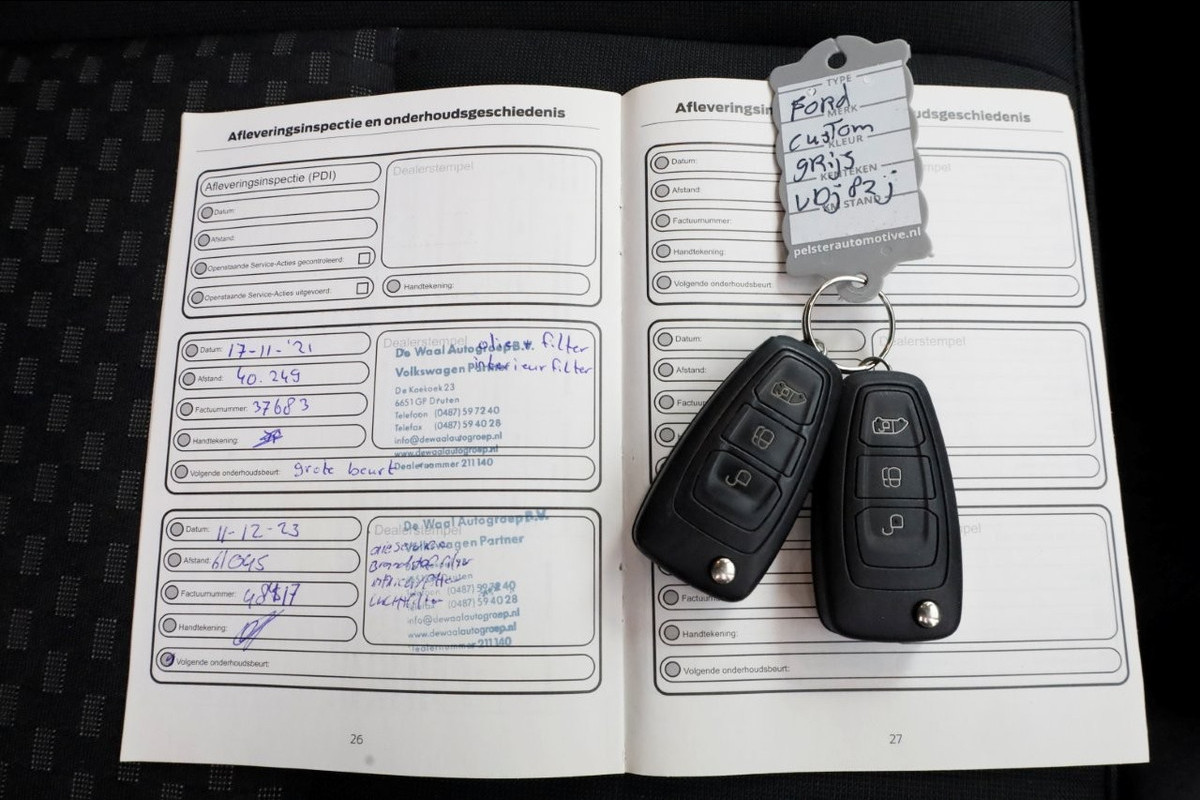 Afleveringsinspectie en onderhoudsgeschiedenis
Afleveringsinspectie (PDI)
Datum:
Afstand:
Openstaande Service-Acties gecontroleerd:
Openstaande Service-Acties uitgevoerd:
Dealerstempel
Handtekening:
Datum: 17-11-'21
Afstand: 40.249
Factuurnummer: 37683
Handtekening:
Volgende onderhoudsbeurt: grote beurt
Dealerstempel
olie + filter
interieurfilter
De Waal Autogroep B.V.
Volkswagen Partner
De Koekoek 23
6651 GP Druten
Telefoon (0487) 59 72 40
Telefax (0487) 59 40 28
info@dewaalautogroep.nl
www.dewaalautogroep.nl
Dealernummer 211140
Datum: 11-12-23
Afstand: 61095
Factuurnummer:
Handtekening:
Volgende onderhoudsbeurt:
Dealerstempel
De Waal Autogroep B.V.
Volkswagen Partner
Brandstof filter
Luchtfilter
(0487) 59 72 40
(0487) 59 40 28
info@dewaalautogroep.nl
www.dewaalautogroep.nl
Dealernummer 211140
26
Afleveringsin
udsgeschiedenis
Datum:
Afstand:
Factuurnummer:
Handtekening:
Volgende onderhoudsbeurt:
Datum:
Afstand:
Factuu
Dealerstempel
Factuurn
Handtekening:
Volgende onderhoudsbeurt:
27
TYPE
Ford
MERK
Custom
KLEUR
grijs
KENTEKEN
VDJ 82 J
KM STAND
pelsterautomotive.nl